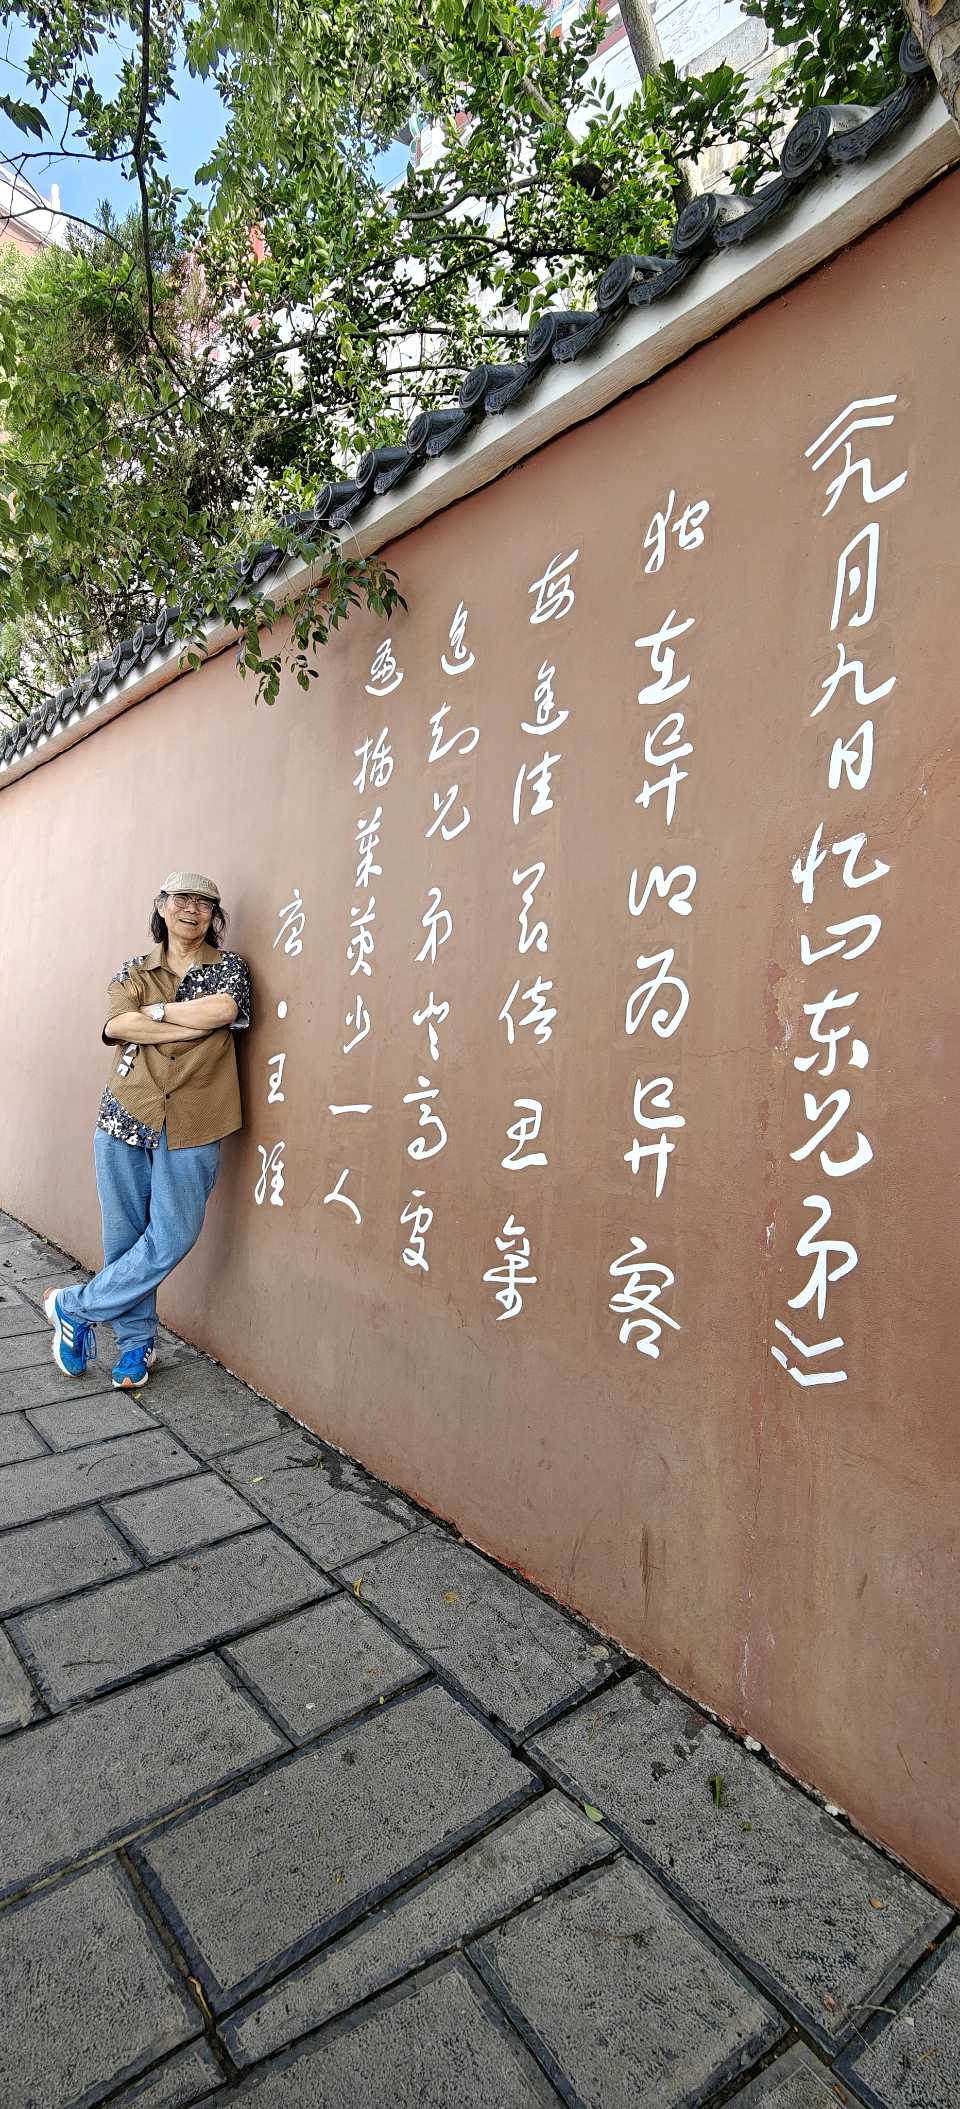 《九月九日忆山东兄弟》
独在异乡为异客
每逢佳节倍思亲
遥知兄弟登高处
遍插茱萸少一人
唐·王维